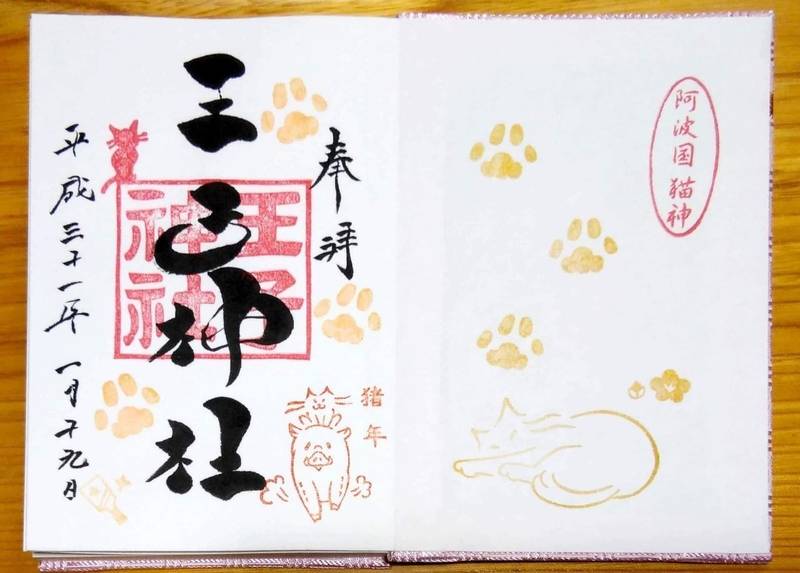 阿波国猫神
奉拝
猪年
王子神社
王子
神社
平成三十一年一月十九日